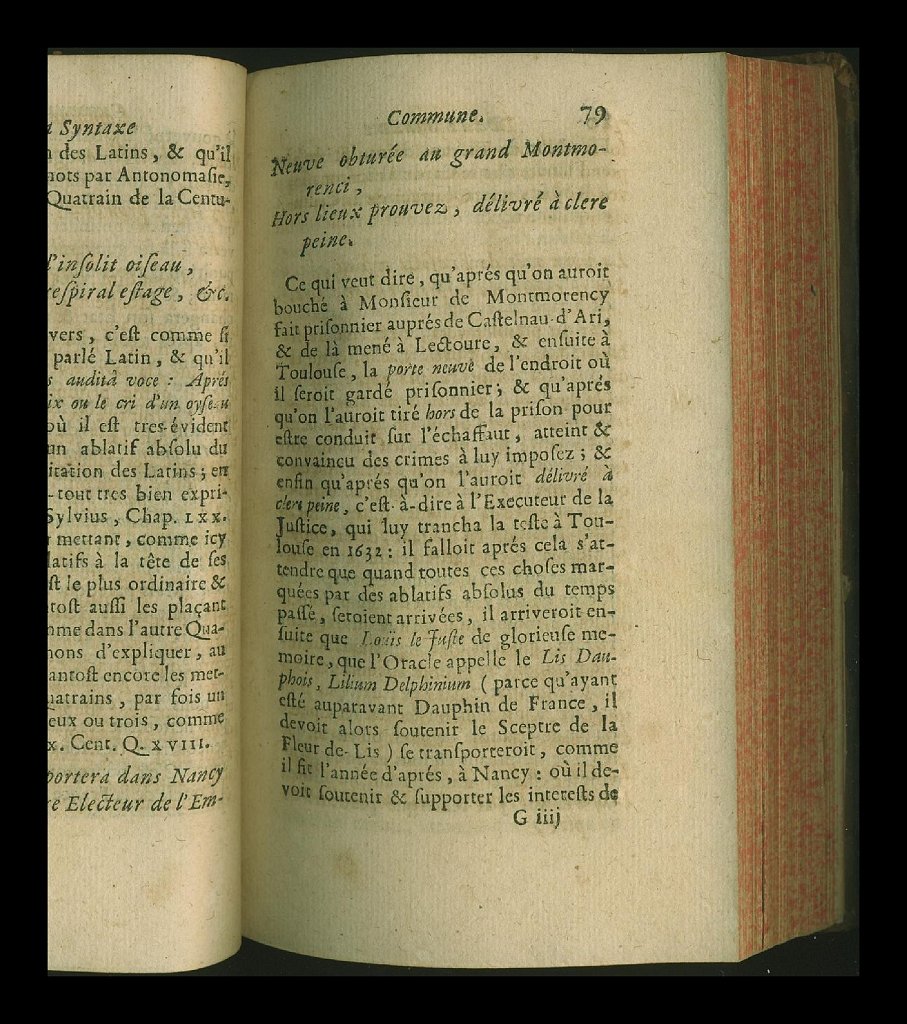 Syntaxe
des Latins, & qu'il
mots par Antonomaſie,
Quatrain de la Centu-
l'inſolit oiſeau,
reſpiral eſtage, &c.
vers, c'eſt comme ſi
parlé Latin, & qu'il
audità voce : Aprés
ix ou le cri d'un oyſeau
où il eſt tres-évident
un ablatif abſolu du
itation des Latins ; en
- tout tres bien expri-
Sylvius, Chap. LXX.
mettant, comme icy
latifs à la tête de ſes
ſt le plus ordinaire &
toſt auſſi les plaçant
mme dans l'autre Qua-
nons d'expliquer, au
antoſt encore les met-
uatrains, par fois un
eux ou trois, comme
x. Cent. Q. XVIII.
portera dans Nancy
re Electeur de l'Em-
Commune. 79
Neuve obturée au grand Montmo-
renci,
Hors lieux prouvez, délivré à clere
peine.
Ce qui veut dire, qu'aprés qu'on auroit
bouché à Monſieur de Montmorency
fait priſonnier auprés de Caſtelnau-d'Ari,
& de là mené à Lectoure, & enſuite à
Toulouſe, la porte neuve de l'endroit où
il ſeroit gardé priſonnier ; & qu'aprés
qu'on l'auroit tiré hors de la priſon pour
eſtre conduit ſur l'échaffaut, atteint &
convaincu des crimes à luy impoſez ; &
enfin qu'aprés qu'on l'auroit délivré à
clere peine, c'eſt-à-dire à l'Executeur de la
Juſtice, qui luy trancha la teſte à Tou-
louſe en 1632 : il falloit aprés cela s'at-
tendre que quand toutes ces choſes mar-
quées par des ablatifs abſolus du temps
paſſé, ſeroient arrivées, il arriveroit en-
ſuite que Loüis le Juſte de glorieuſe me-
moire, que l'Oracle appelle le Lis Dau-
phois, Lilium Delphinium ( parce qu'ayant
eſté auparavant Dauphin de France, il
devoit alors ſoutenir le Sceptre de la
Fleur de-Lis ) ſe tranſporteroit, comme
il fit l'année d'aprés, à Nancy : où il de-
voit ſoutenir & ſupporter les intereſts de
G iiij